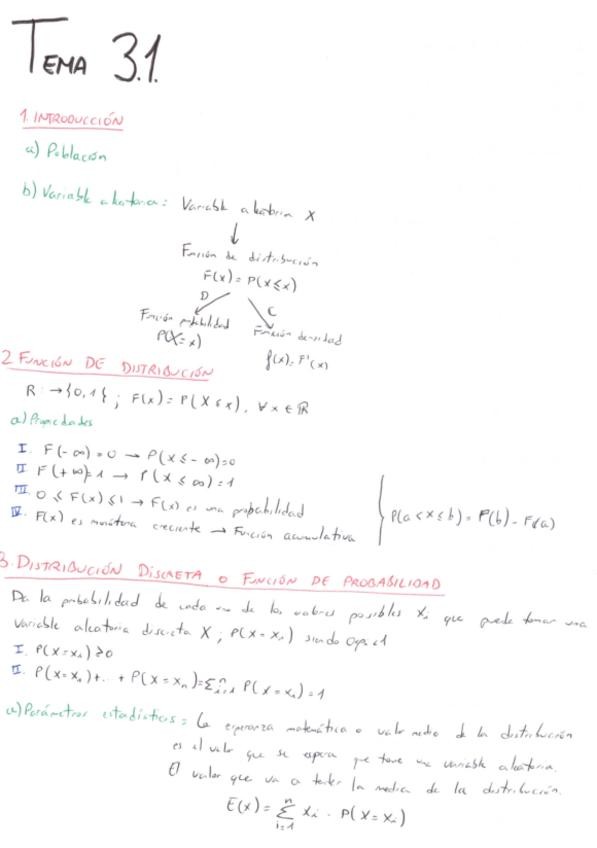 TEMA 3.1.
1. INTRODUCCIÓN
a) Población
b) Variable aleatoria: Variable aleatoria X
↓
Función de distribución
F(x) = P(X ≤ x)
D C
Función probabilidad
P(X = x)
Función densidad
f(x) = F'(x)
2 FUNCIÓN DE DISTRIBUCIÓN
R → {0,1} ; F(x) = P(X ≤ x), ∀ x ∈ ℝ
a) Propiedades
I. F(-∞) = 0 → P(x ≤ -∞) = 0
II. F(+∞) = 1 → P(x ≤ ∞) = 1
III. 0 ≤ F(x) ≤ 1 → F(x) es una probabilidad
IV. F(x) es monótona creciente → Función acumulativa
P(a < x ≤ b) = F(b) - F(a)
3. DISTRIBUCIÓN DISCRETA O FUNCIÓN DE PROBABILIDAD
Da la probabilidad de cada uno de los valores posibles Xi que puede tomar una
variable aleatoria discreta X ; P(X = xi) siendo
I. P(X = xi) ≥ 0
II. P(X = x1) + .. + P(X = xn) = Σ i=1 n P(X = xi) = 1
a) Parámetros estadísticos: La esperanza matemática o valor medio de la distribución
es el valor que se espera que tome una variable aleatoria.
El valor que va a tender la media de la distribución.
E(x) = Σ i=1 n xi · P(X = xi)